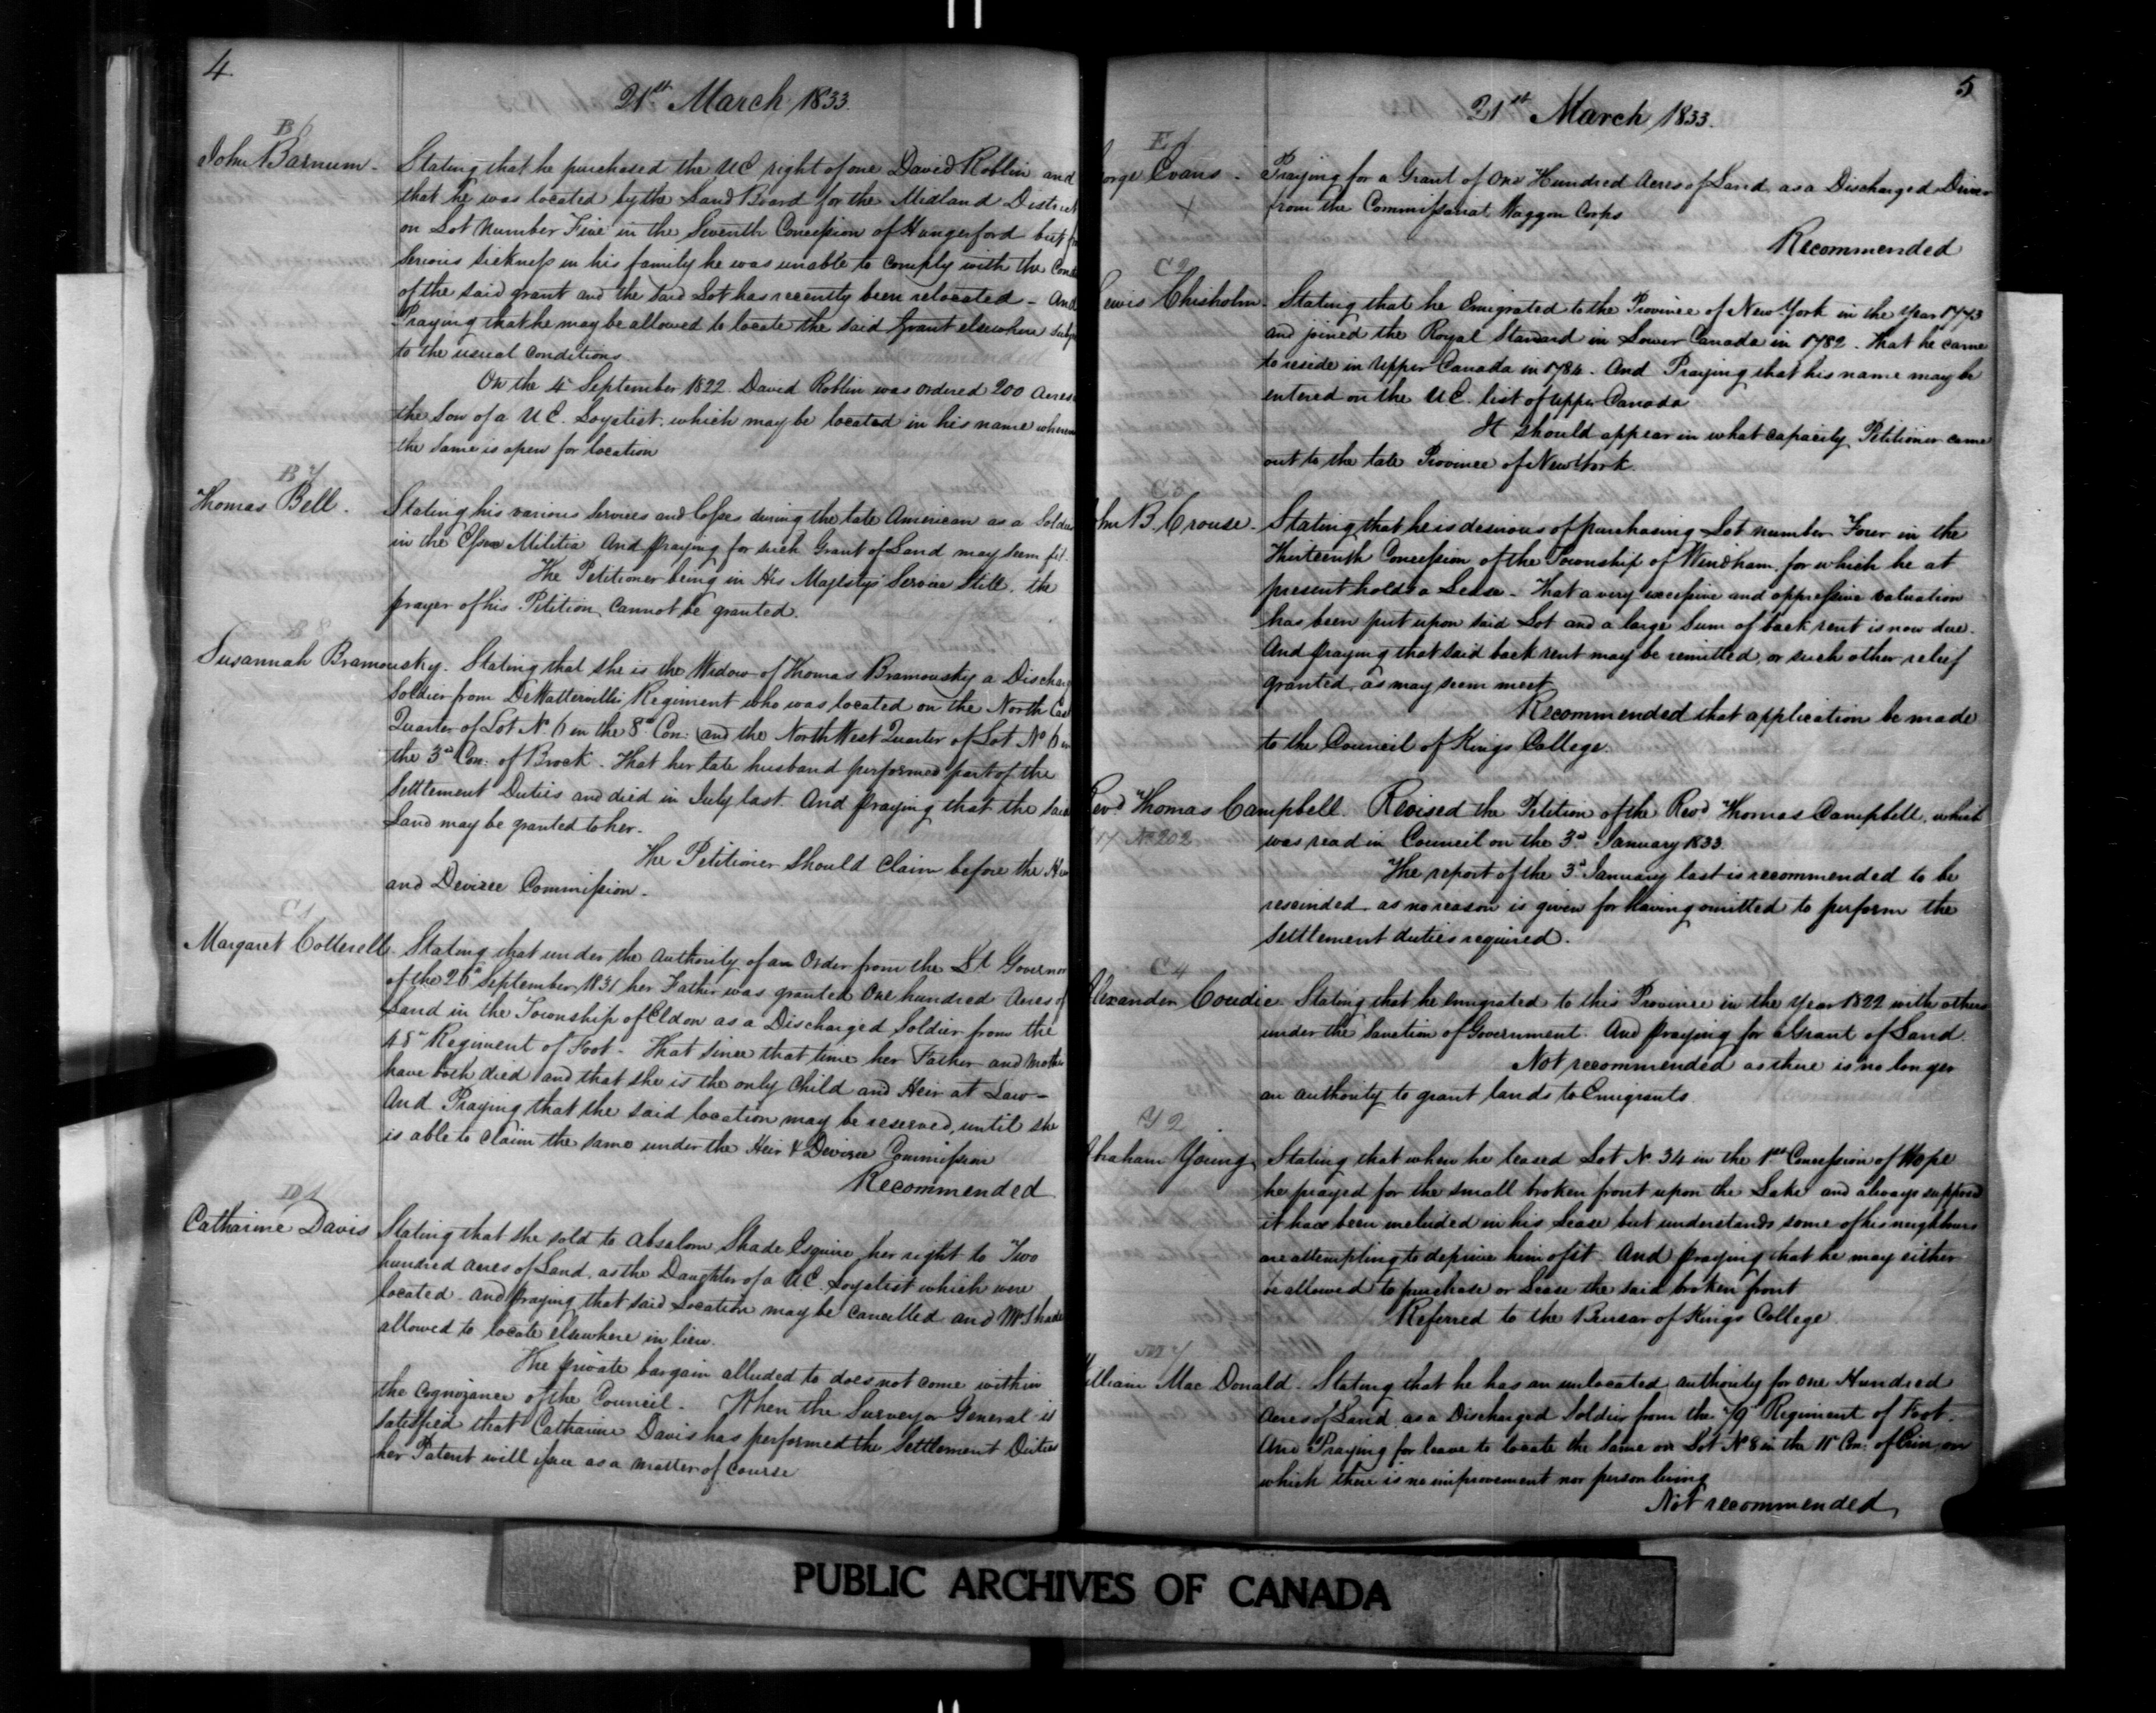 4
21st March 1833.
B 6
John Barnum. Stating that he purchased the UE right of one David Roblin and
that he was located by the Land Board for the Midland District
on Lot Number Five in the Seventh Concession of Hungerford but
Serious sickness in his family he was unable to comply with the
of the said grant and the said Lot has recently been relocated - And
Praying that he may be allowed to locate the said Grant elsewhere
to the usual Conditions
On the 4 September 1822 David Roblin was ordered 200 acres
the Son of a U.E. Loyalist, which may be located in his name
the same is open for location
B 7
Thomas Bell. Stating his various Services and losses during the late American as a
in the Essex Militia And praying for such Grant of Land may seem fit.
The Petitioner being in His Majesty's Service Still, the
prayer of his Petition Cannot be granted.
B 8
Susannah Bramousky. Stating that she is the Widow of Thomas Bramousky a
Soldier from DeWatteville's Regiment who was located on the North
Quarter of Lot No. 6 in the 8th Con: and the North West Quarter of Lot No 6 in
the 3d Con: of Brock. That her late husband performed part of the
Settlement Duties and died in July last And praying that the
Land may be granted to her.
The Petitioner should Claim before the
and Devisee Commission.
C 1
Margaret Cotterell. Stating that under the Authority of an Order from the Lt Governor
of the 26th September 1831 her Father was granted One hundred Acres of
Land in the Township of Eldon as a Discharged Soldier from the
Regiment of Foot - That since that time her Father and Mother
have both died and that she is the only Child and Heir at Law -
And Praying that the said location may be reserved, until she
is able to claim the same under the Heir & Devisee Commission
Recommended
D 1
Catharine Davis Stating that she sold to Absalom Shade Esquire her right to Two
hundred acres of Land, as the Daughter of a U.E. Loyalist which were
located - And praying that said Location may be Cancelled and Mr Shade
allowed to locate elsewhere in lieu.
The private bargain alluded to does not come within
the Cognizance of the Council - When the Surveyor General is
satisfied that Catharine Davis has performed the Settlement Duties
her Patent will issue as a matter of Course
5
21st March 1833.
E 1
Evans - Praying for a Grant of One Hundred Acres of Land as a Discharged Driver
X from the Commissariat Waggon Corps
Recommended
C 2
Chisholm. Stating that he Emigrated to the Province of New York in the year 1773
and joined the Royal Standard in Lower Canada in 1782. That he came
to reside in Upper Canada in 1784. And Praying that his name may be
entered on the U.E. list of Upper Canada
It should appear in what capacity Petitioner came
out to the late Province of New York.
C 3
B. Crouse. Stating that he is desirous of purchasing Lot number Four in the
Thirteenth Concession of the Township of Windham, for which he at
present holds a Lease - That a very excessive and oppressive valuation
has been put upon said Lot and a large Sum of back rent is now due.
And praying that said back rent may be remitted, or such other relief
granted as may seem meet
Recommended that application be made
to the Council of Kings College.
Revd Thomas Campbell. Revised the Petition of the Revd Thomas Campbell, which
No 202 was read in Council on the 3d January 1833.
The report of the 3d January last is recommended to be
rescinded as no reason is given for having omitted to perform the
Settlement duties required.
C 4
Alexander Coudie Stating that he emigrated to this Province in the year 1822 with others
under the Sanction of Government. And praying for a Grant of Land.
Not recommended as there is no longer
an authority to grant lands to Emigrants.
Y 2
Abraham Young. Stating that when he leased Lot No. 34 in the 1st Concession of Hope
he prayed for the small broken front upon the Lake and always supposed
it had been included in his Lease but understands some of his neighbours
are attempting to deprive him of it. And praying that he may either
be allowed to purchase or Lease the said broken front
Referred to the Bursar of Kings College.
M 7
William Mac Donald. Stating that he has an unlocated authority for One Hundred
Acres of Land as a Discharged Soldier from the 79th Regiment of Foot.
And Praying for leave to locate the Same on Lot No 8 in the 11th Con. of Erin, on
which there is no improvement nor person living
Not recommended
PUBLIC ARCHIVES OF CANADA